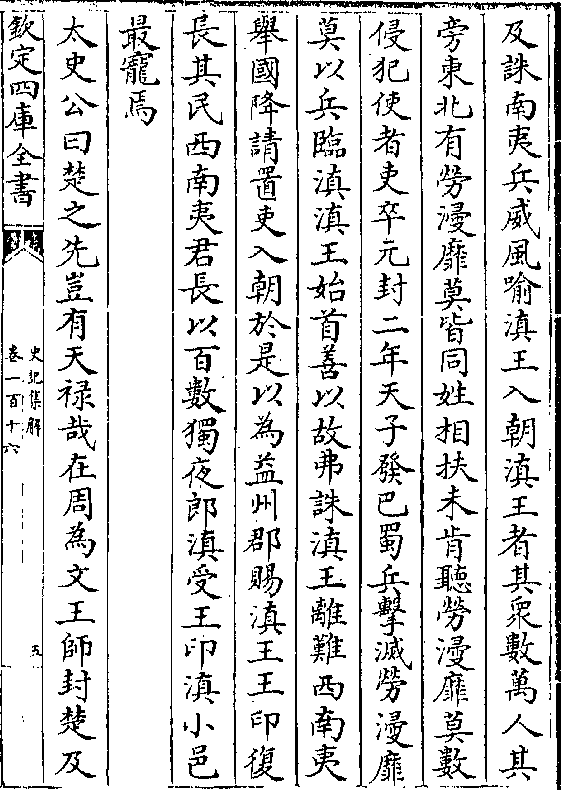 及誅南夷兵威風喻滇王入朝滇王者其衆數萬人其
旁東北有勞漫靡莫皆同姓相扶未肯聽勞漫靡莫數
侵犯使者吏卒元封二年天子發巴蜀兵擊滅勞漫靡
莫以兵臨滇滇王始首善以故弗誅滇王離難西南夷
舉國降請置吏入朝於是以為益州郡賜滇王王印復
長其民西南夷君長以百數獨夜郎滇受王印滇小邑
最寵焉
太史公曰楚之先豈有天禄哉在周為文王師封楚及
欽定四庫全書
史記集解
卷一百十六
五